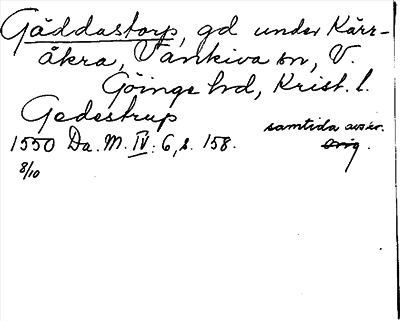 Gäddastorp, gd under Kärr-
åkra, Vankiva sn, V.
Göinge hd, Krist. l.
Gedestrup
samtida avskr.
1550 Da. M. IV: 6, s. 158. orig.
8/10